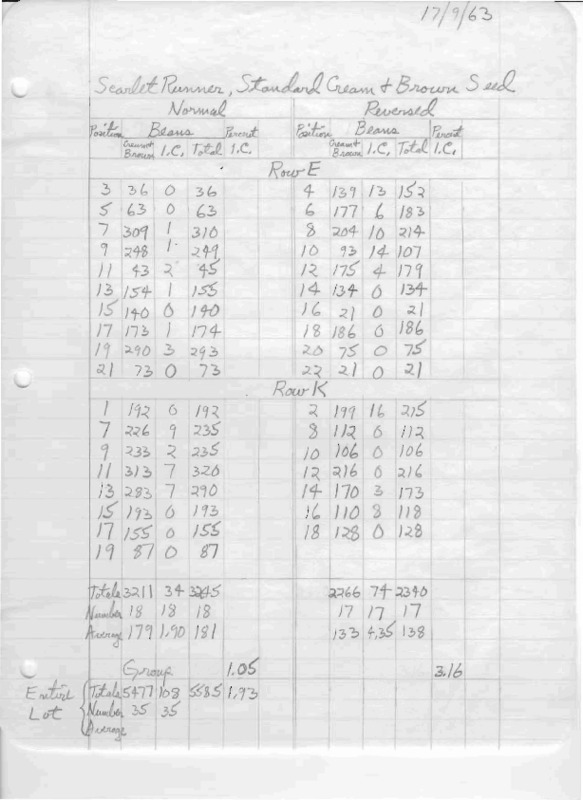 17/9/63
Scarlet Runner, Standard Cream & Brown Seed
Normal Reversed
Position Beans Percent Position Beans Percent
Cream & Brown I.C. Total I.C. Cream & Brown I.C. Total I.C.
Row E
3 36 0 36 4 139 13 152
5 63 0 63 6 177 6 183
7 309 1 310 8 204 10 214
9 248 1 249 10 93 14 107
11 43 2 45 12 175 4 179
13 154 1 155 14 134 0 134
15 140 0 140 16 21 0 21
17 173 1 174 18 186 0 186
19 290 3 293 20 75 0 75
21 73 0 73 22 21 0 21
Row K
1 192 0 192 2 199 16 215
7 226 9 235 8 112 0 112
9 233 2 235 10 106 0 106
11 313 7 320 12 216 0 216
13 283 7 290 14 170 3 173
15 193 0 193 16 110 8 118
17 155 0 155 18 128 0 128
19 87 0 87
Totals 3211 34 3245 2266 74 2340
Number 18 18 18 17 17 17
Average 179 1.90 181 133 4.35 138
Group 1.05 3.16
Entire Totals 5477 108 5585 1.93
Lot Number 35 35
Average